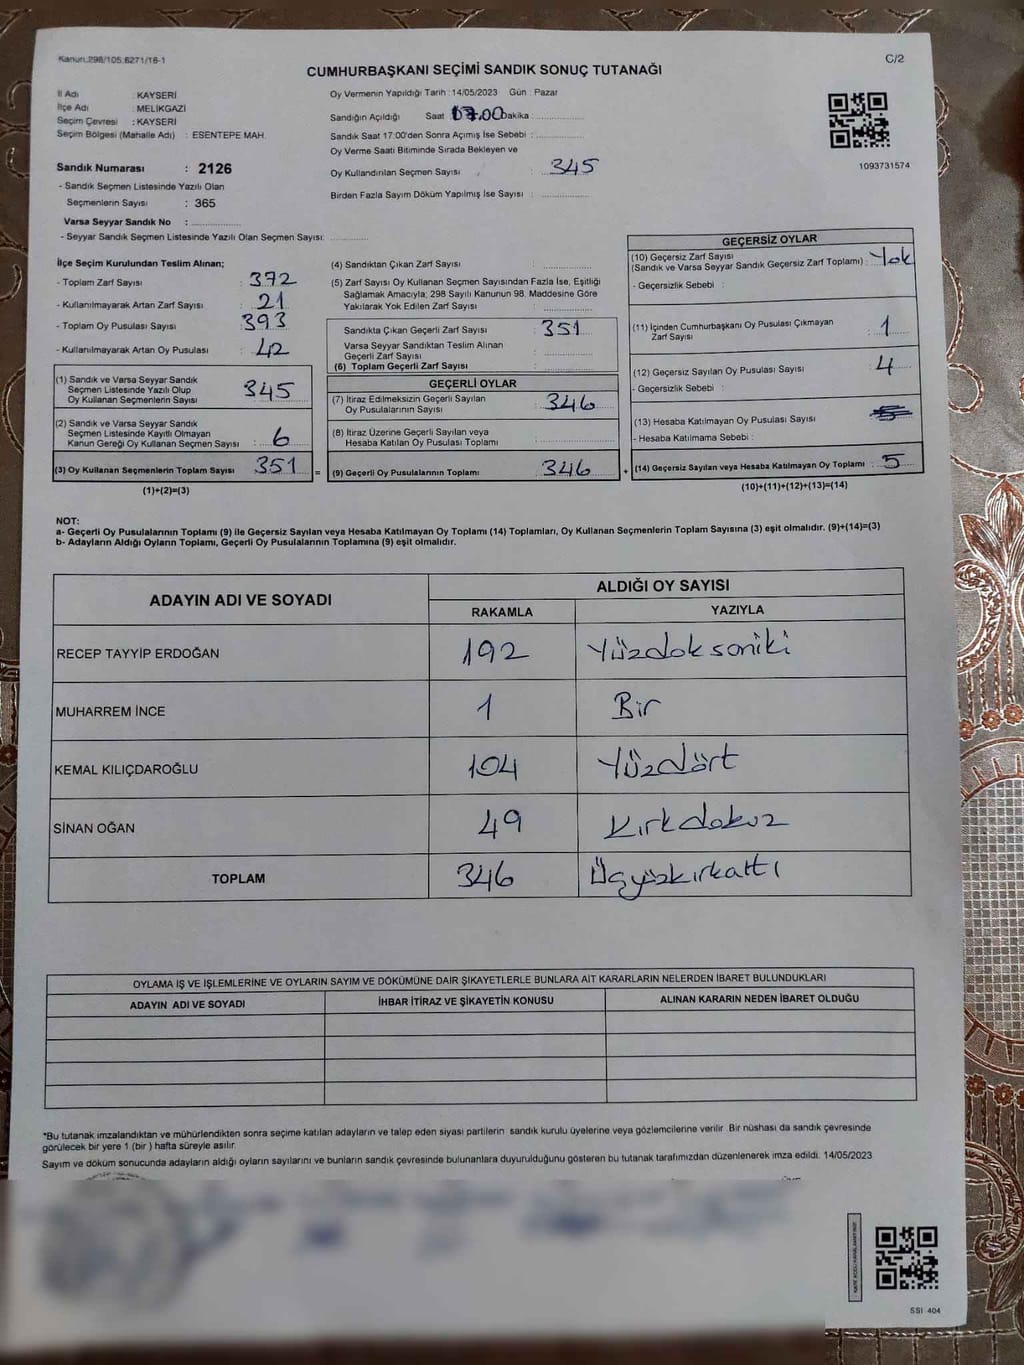 Kanun.298/105.6271/16-1
C/2
CUMHURBAŞKANI SEÇİMİ SANDIK SONUÇ TUTANAĞI
İl Adı : KAYSERİ
İlçe Adı : MELİKGAZİ
Seçim Çevresi : KAYSERİ
Seçim Bölgesi (Mahalle Adı) : ESENTEPE MAH.
Oy Vermenin Yapıldığı Tarih : 14/05/2023 Gün : Pazar
Sandığın Açıldığı Saat 17.00 Dakika
Sandık Saat 17:00'den Sonra Açımış İse Sebebi :
Oy Verme Saati Bitiminde Sırada Bekleyen ve
Oy Kullandırılan Seçmen Sayısı : 345
Birden Fazla Sayım Döküm Yapılmış İse Sayısı :
1093731574
Sandık Numarası : 2126
- Sandık Seçmen Listesinde Yazılı Olan
Seçmenlerin Sayısı : 365
Varsa Seyyar Sandık No :
- Seyyar Sandık Seçmen Listesinde Yazılı Olan Seçmen Sayısı:
İlçe Seçim Kurulundan Teslim Alınan;
- Toplam Zarf Sayısı : 372
- Kullanılmayarak Artan Zarf Sayısı : 21
- Toplam Oy Pusulası Sayısı : 393
- Kullanılmayarak Artan Oy Pusulası : 42
(1) Sandık ve Varsa Seyyar Sandık
Seçmen Listesinde Yazılı Olup
Oy Kullanan Seçmenlerin Sayısı : 345
(2) Sandık ve Varsa Seyyar Sandık
Seçmen Listesinde Kayıtlı Olmayan
Kanun Gereği Oy Kullanan Seçmen Sayısı : 6
(3) Oy Kullanan Seçmenlerin Toplam Sayısı : 351 =
(1)+(2)=(3)
(4) Sandıktan Çıkan Zarf Sayısı :
(5) Zarf Sayısı Oy Kullanan Seçmen Sayısından Fazla İse, Eşitliği
Sağlamak Amacıyla; 298 Sayılı Kanunun 98. Maddesine Göre
Yakılarak Yok Edilen Zarf Sayısı :
Sandıkta Çıkan Geçerli Zarf Sayısı : 351
Varsa Seyyar Sandıktan Teslim Alınan
Geçerli Zarf Sayısı :
(6) Toplam Geçerli Zarf Sayısı :
GEÇERLİ OYLAR
(7) İtiraz Edilmeksizin Geçerli Sayılan
Oy Pusulalarının Sayısı : 346
(8) İtiraz Üzerine Geçerli Sayılan veya
Hesaba Katılan Oy Pusulası Toplamı :
(9) Geçerli Oy Pusulalarının Toplamı : 346 +
GEÇERSİZ OYLAR
(10) Geçersiz Zarf Sayısı
(Sandık ve Varsa Seyyar Sandık Geçersiz Zarf Toplamı) : Yok
- Geçersizlik Sebebi :
(11) İçinden Cumhurbaşkanı Oy Pusulası Çıkmayan
Zarf Sayısı : 1
(12) Geçersiz Sayılan Oy Pusulası Sayısı : 4
- Geçersizlik Sebebi :
(13) Hesaba Katılmayan Oy Pusulası Sayısı :
- Hesaba Katılmama Sebebi :
(14) Geçersiz Sayılan veya Hesaba Katılmayan Oy Toplamı : 5
(10)+(11)+(12)+(13)=(14)
NOT:
a- Geçerli Oy Pusulalarının Toplamı (9) ile Geçersiz Sayılan veya Hesaba Katılmayan Oy Toplamı (14) Toplamları, Oy Kullanan Seçmenlerin Toplam Sayısına (3) eşit olmalıdır. (9)+(14)=(3)
b- Adayların Aldığı Oyların Toplamı, Geçerli Oy Pusulalarının Toplamına (9) eşit olmalıdır.
ADAYIN ADI VE SOYADI
ALDIĞI OY SAYISI
RAKAMLA YAZIYLA
RECEP TAYYİP ERDOĞAN 192 Yüzdoksaniki
MUHARREM İNCE 1 Bir
KEMAL KILIÇDAROĞLU 104 Yüzdört
SİNAN OĞAN 49 Kırkdokuz
TOPLAM 346 Üçyüzkırkaltı
OYLAMA İŞ VE İŞLEMLERİNE VE OYLARIN SAYIM VE DÖKÜMÜNE DAİR ŞİKAYETLERLE BUNLARA AİT KARARLARIN NELERDEN İBARET BULUNDUKLARI
ADAYIN ADI VE SOYADI İHBAR İTİRAZ VE ŞİKAYETİN KONUSU ALINAN KARARIN NEDEN İBARET OLDUĞU
*Bu tutanak imzalandıktan ve mühürlendikten sonra seçime katılan adayların ve talep eden siyasi partilerin sandık kurulu üyelerine veya gözlemcilerine verilir. Bir nüshası da sandık çevresinde
görülecek bir yere 1 (bir) hafta süreyle asılır.
Sayım ve döküm sonucunda adayların aldığı oyların sayılarını ve bunların sandık çevresinde bulunanlara duyurulduğunu gösteren bu tutanak tarafımızdan düzenlenerek imza edildi. 14/05/2023
SSI 404